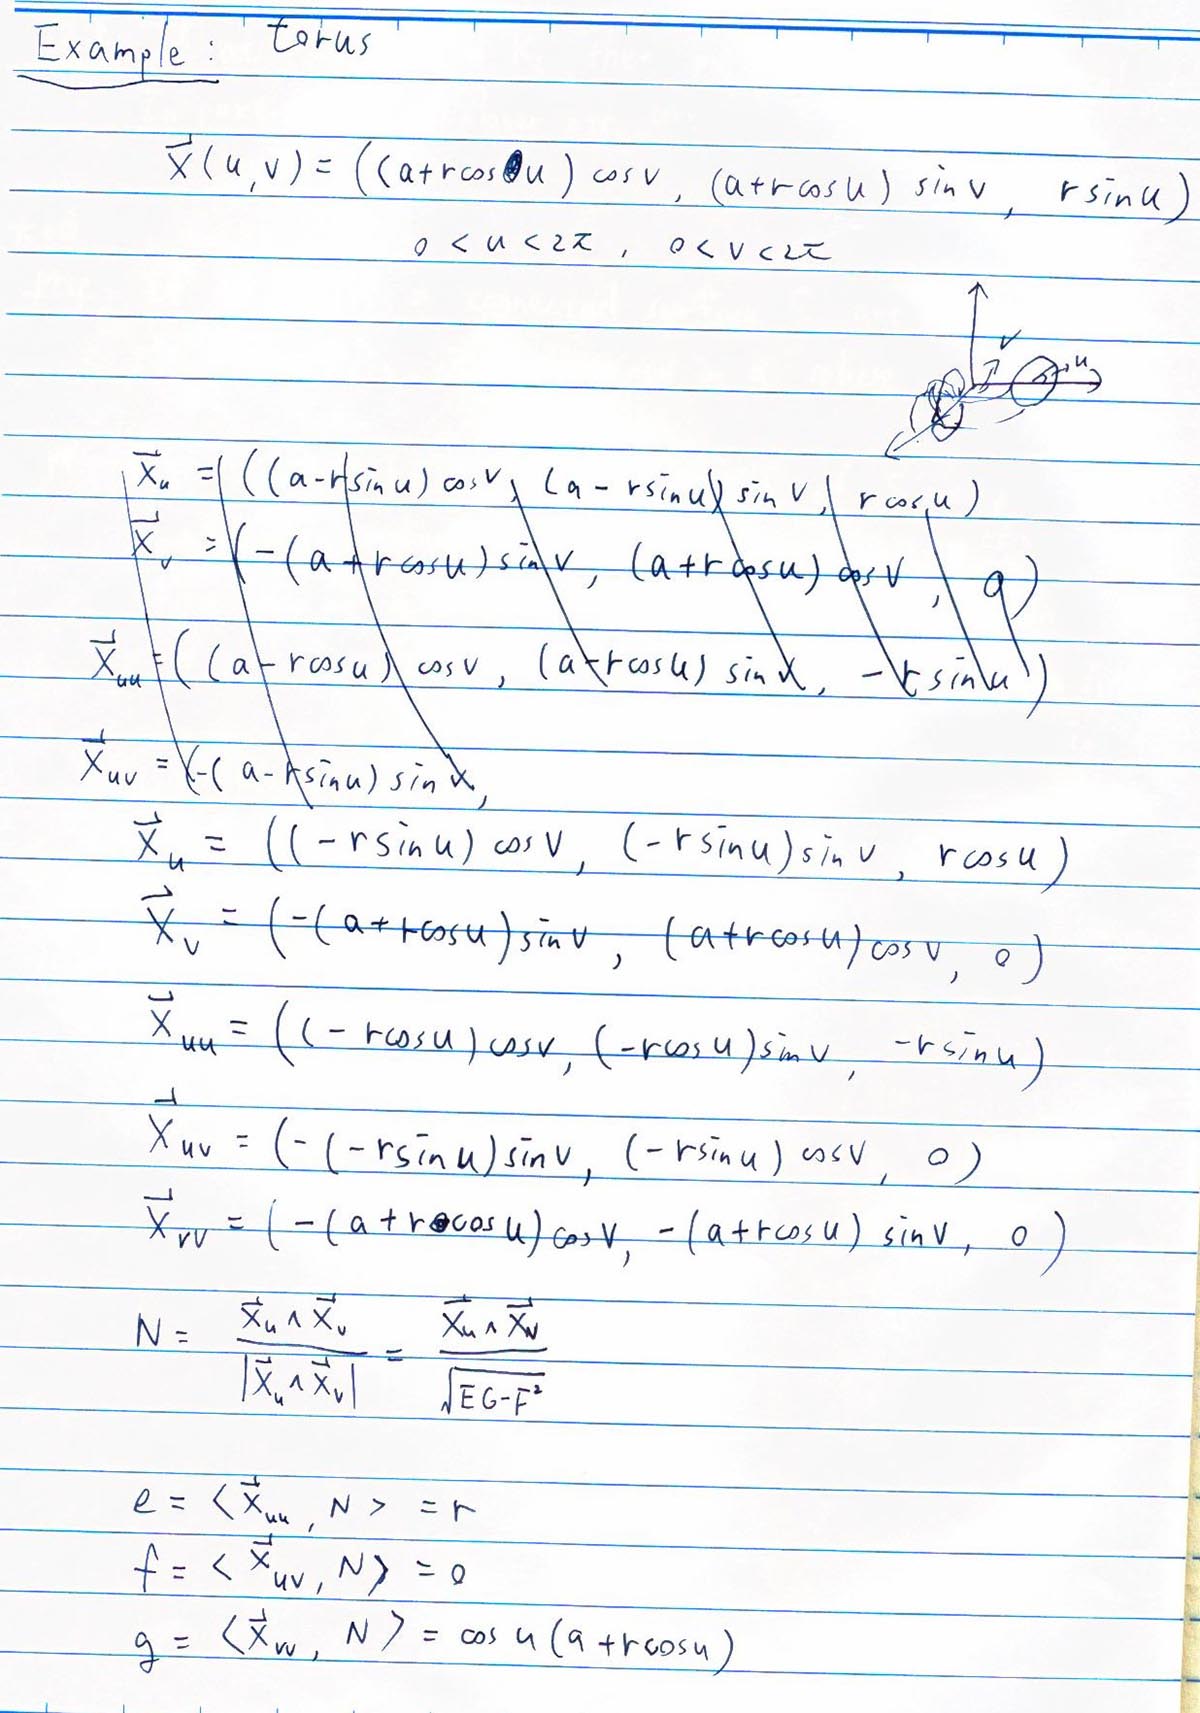 Example: torus
x⃗(u,v) = ((a+rcosu) cosv, (a+rcosu) sinv, rsinu)
0 < u < 2π, 0 < v < 2π
v
u
x⃗_u = ((a-rsinu) cosv, (a-rsinu) sinv, rcosu)
x⃗_v = (-(a+rcosu) sinv, (a+rcosu) cosv, 0)
x⃗_uu = ((a-rcosu) cosv, (a-rcosu) sinv, -rsinu)
x⃗_uv = (-(a-rsinu) sinv,
x⃗_u = ((-rsinu) cosv, (-rsinu) sinv, rcosu)
x⃗_v = (-(a+rcosu) sinv, (a+rcosu) cosv, 0)
x⃗_uu = ((-rcosu) cosv, (-rcosu) sinv, -rsinu)
x⃗_uv = (-(-rsinu) sinv, (-rsinu) cosv, 0)
x⃗_vv = (-(a+rcosu) cosv, -(a+rcosu) sinv, 0)
N = x⃗_u ∧ x⃗_v / |x⃗_u ∧ x⃗_v| = x⃗_u ∧ x⃗_v / √(EG-F²)
e = <x⃗_uu, N> = r
f = <x⃗_uv, N> = 0
g = <x⃗_vv, N> = cosu(a+rcosu)